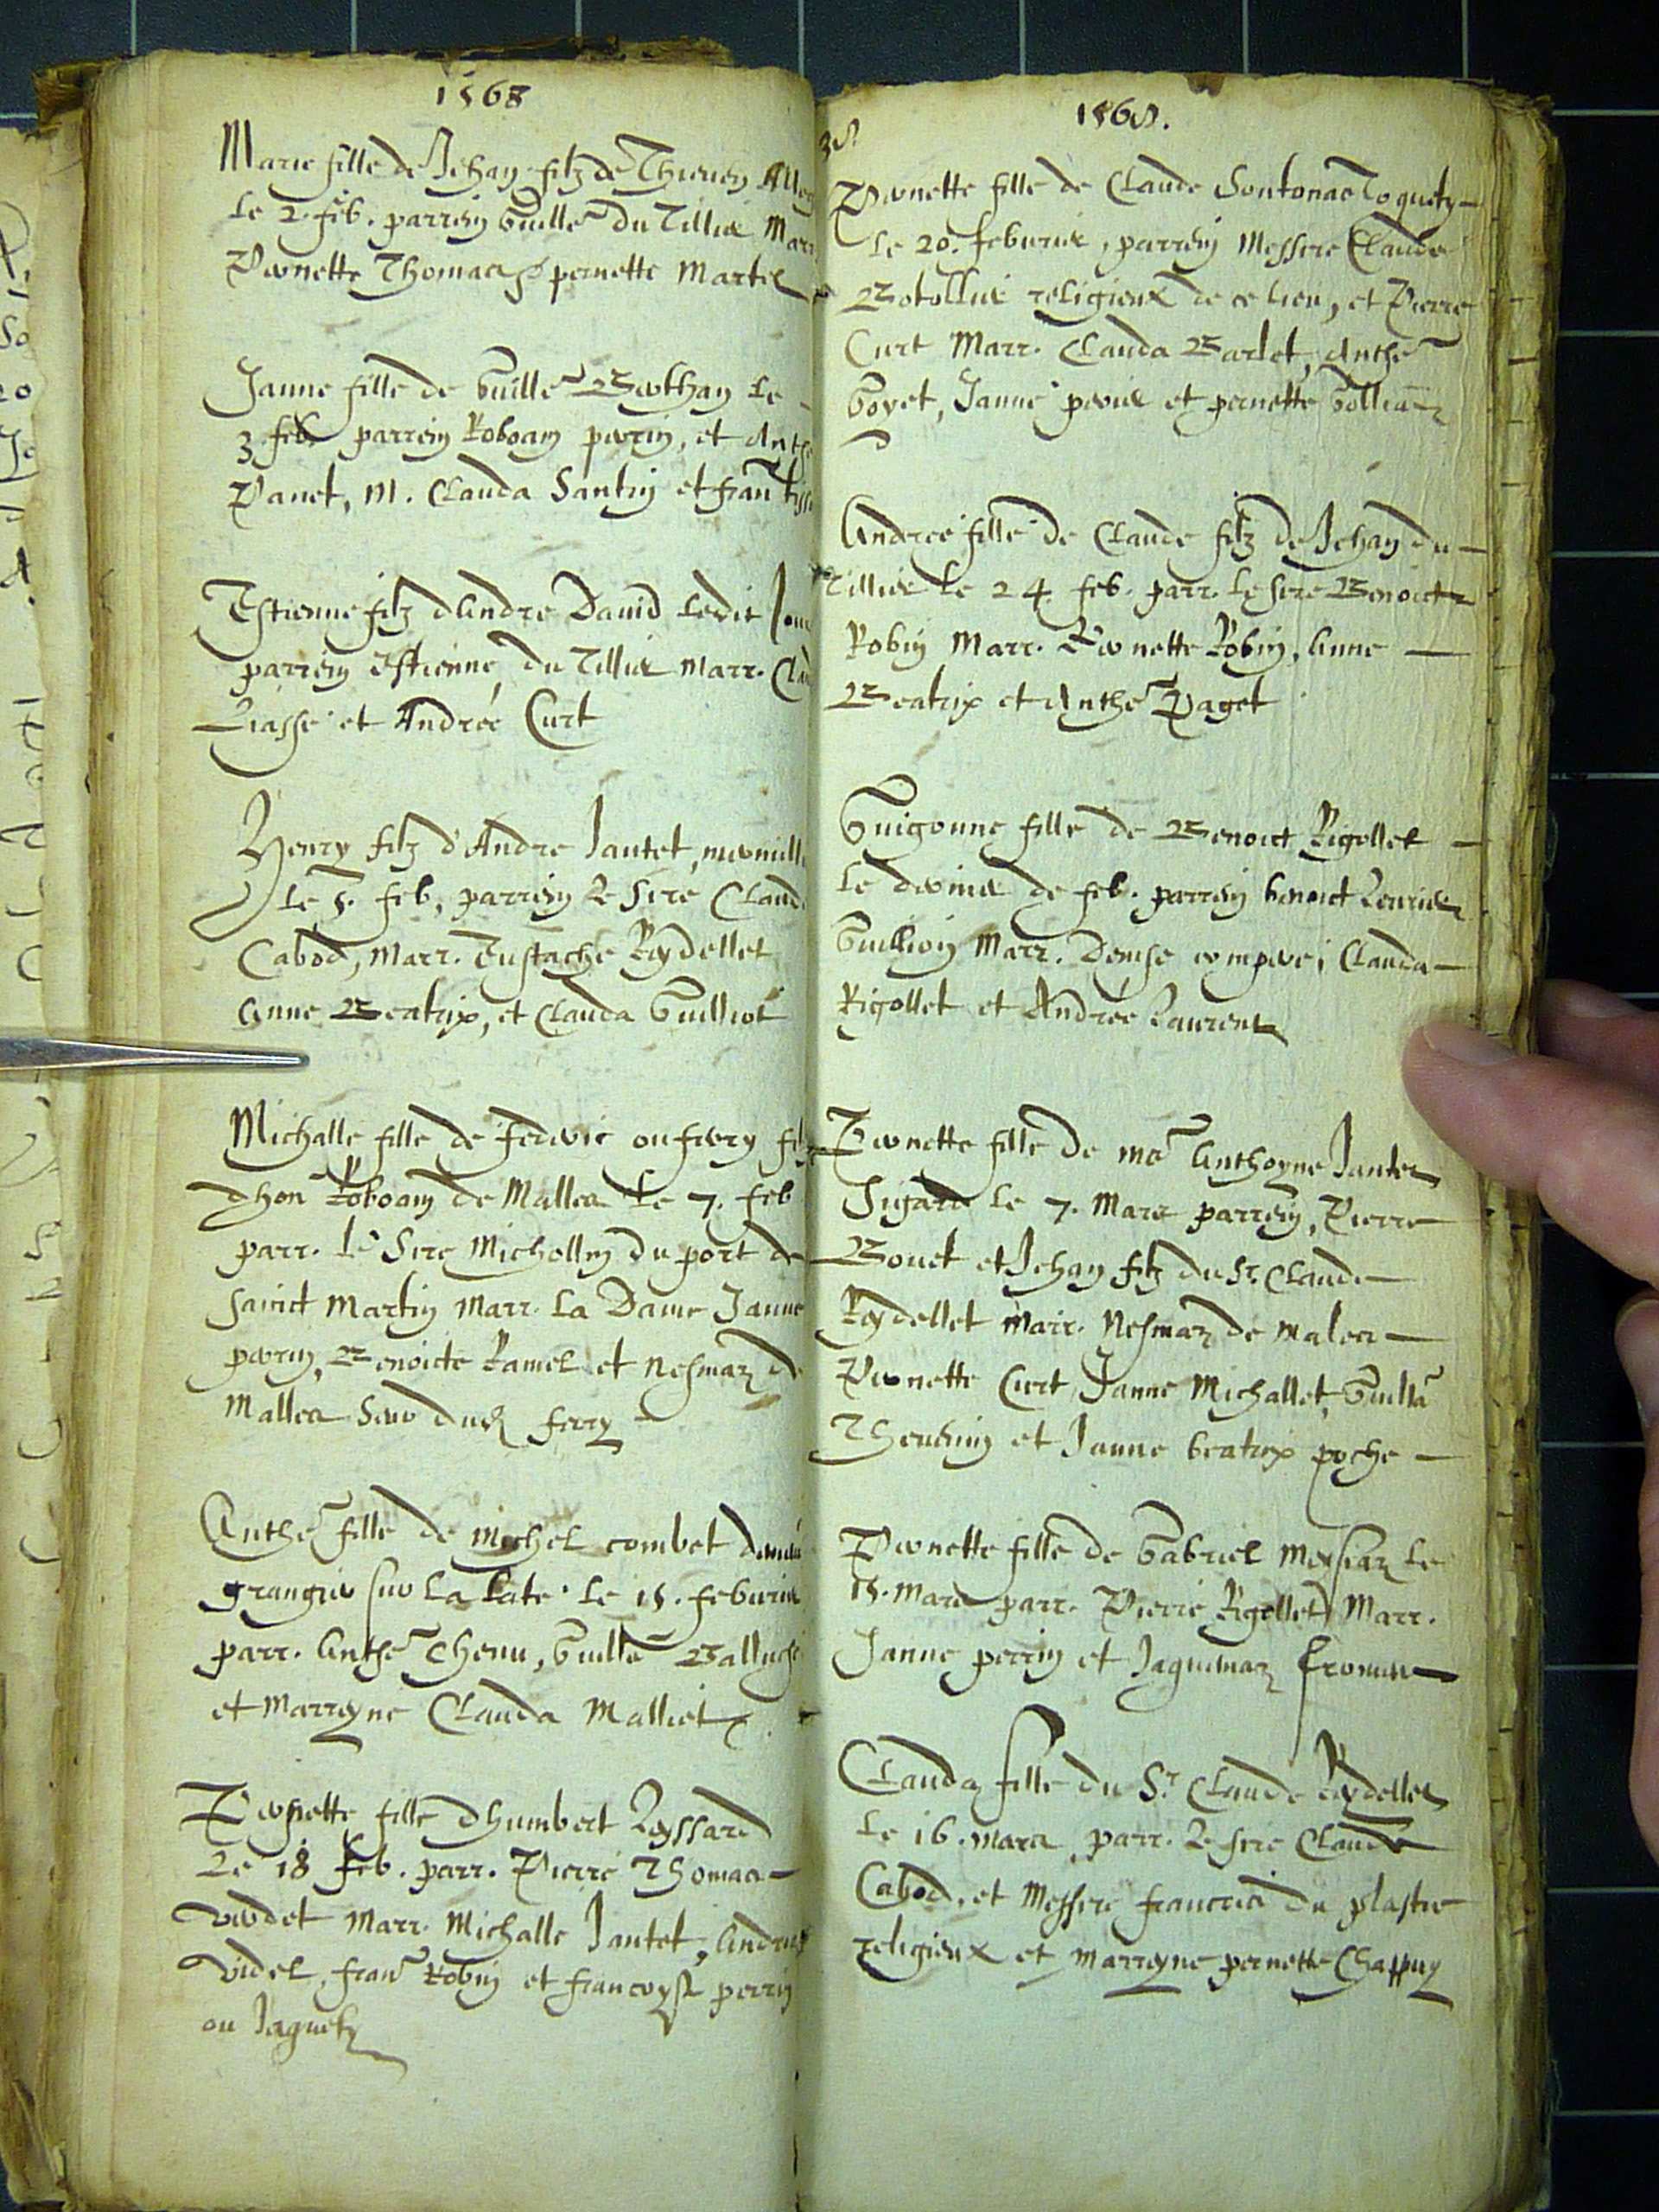 1568
Marie fille de Jehan filz de Thieven
le 2. feb. parrein Guille du Tillier
Pernette Thomas pernette Martel
Janne fille de Guille Berthan le
3. feb. parrein Roboam perrin, et Anthe
Panet, M. Clauda Santin et fran
Estienne filz dAndre David ledit Jour
parrein Estienne du Tillier Marr.
et Andrée Curt
Henry filz d'Andre Jantet,
le 5. feb, parrein Le Sire Claude
Cabod, Marr. Eustache Reydellet
Anne Beatrix, et Clauda Guilliot
Michalle fille de Federic ou ferry
dhon Roboam de Malles le 7. feb
parr. le Sire Michollin du port de
sainct Martin Marr. La Dame Janne
perrin, Benoicte Ramel et Nesmaz de
Malles Seur dud. ferry
Anthe fille de Michel combet
grangier sur la late le 15. febvrier
parr. Anthe Thenu, Guille
et Marreyne Clauda Malliet
Pernette fille dhumbert Reyssard
Le 18 feb. parr. Pierre Thomas
verdet Marr. Michalle Jantet, Andrée
Videl, fran Robin et francoyse perrin
ou Jaquety
38.
1568.
Pernette fille de Claude Sontonas Toquety
le 20. febvrier, parrein Messire Claude
Botollier religieux de ce lieu, et Pierre
Curt Marr. Clauda Barlet, Anthe
Goyet, Janne perier et pernette
Andree fille de Claude filz de Jehan du
Tillier le 24 feb. parr. le sire Benoict
Robin Marr. Pernette Robin, Anne
Beatrix et Anthe Paget
Guigonne fille de Benoict Rigollet
le dernier de feb. parrein benoict
Guillion Marr. Denise compere; Clauda
Rigollet et Andrée Laurent
Pernette fille de me Anthoyne Jantet
le 7. Mars parrein, Pierre
Bouet et Jehan filz du Sr. Claude
Reydellet marr. Nesmaz de males
Pernette Curt, Janne Michallet, Guilla
Thevenin et Janne beatrix poche
Pernette fille de Gabriel Mersiaz le
15. Mars parr. Pierre Rigollet Marr.
Janne perrin et Jaquemaz
Clauda fille du Sr. Claude Reydellet
le 16. mars, parr. Le sire Claude
Cabod, et Messire francois du plastre
religieux et marreyne pernette Chappuy